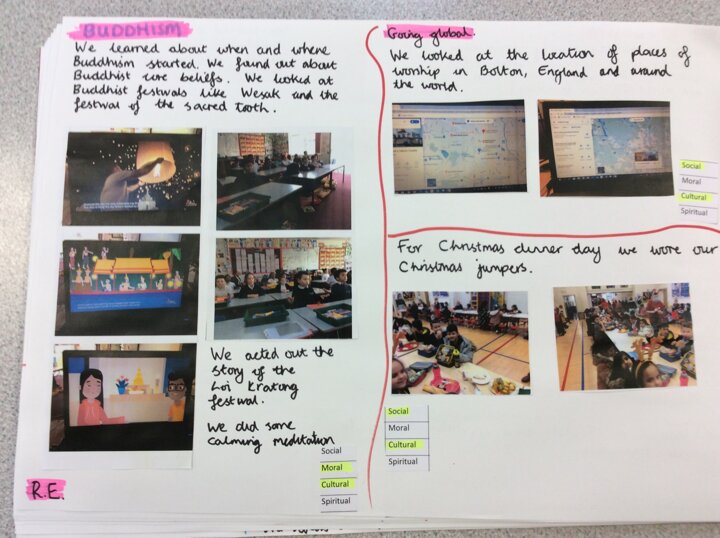 BUDDHISM
We learned about when and where
Buddhism started. We found out about
Buddhist core beliefs. We looked at
Buddhist festivals like Wesak and the
festival of the sacred tooth.
We acted out the
story of the
Loi Kratong
festival.
We did some
calming meditation
Social
Moral
Cultural
Spiritual
R.E.
Going global.
We looked at the location of places of
worship in Bolton, England and around
the world.
Social
Moral
Cultural
Spiritual
For Christmas dinner day we wore our
Christmas jumpers.
Social
Moral
Cultural
Spiritual